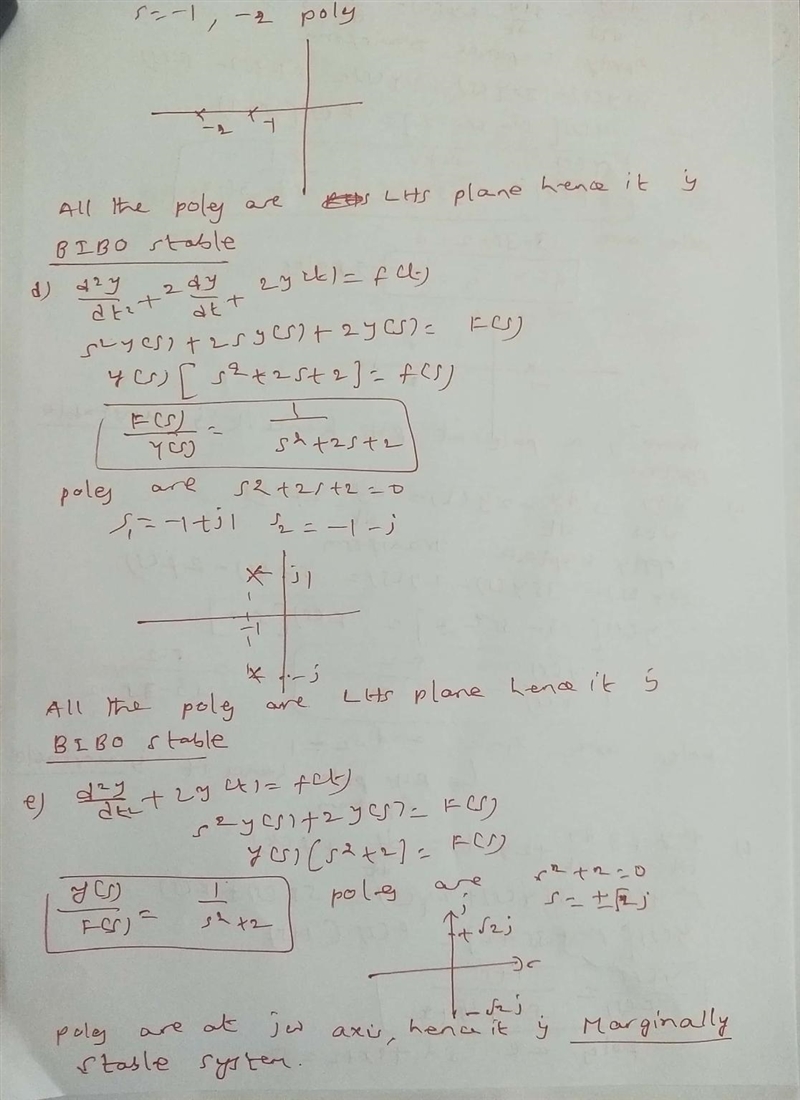 s=-1, -2 poly
-2 -1
All the poles are LHS plane hence it is
BIBO stable
d) d²y/dt² + 2 dy/dt + 2y(t) = f(t)
s²y(s) + 2sy(s) + 2y(s) = F(s)
y(s) [ s²+2s+2 ] = f(s)
F(s)/Y(s) = 1/s²+2s+2
poles are s²+2s+2=0
s₁ = -1+j1 s₂ = -1-j
j1
-1
-j
All the poles are LHS plane hence it is
BIBO stable
e) d²y/dt² + 2y(t) = f(t)
s²y(s) + 2y(s) = F(s)
y(s) [s²+2] = F(s)
y(s)/F(s) = 1/s²+2
poles are s²+2=0
s = ±√2j
j
+√2j
-√2j
poles are at jw axis, hence it is Marginally
stable system.